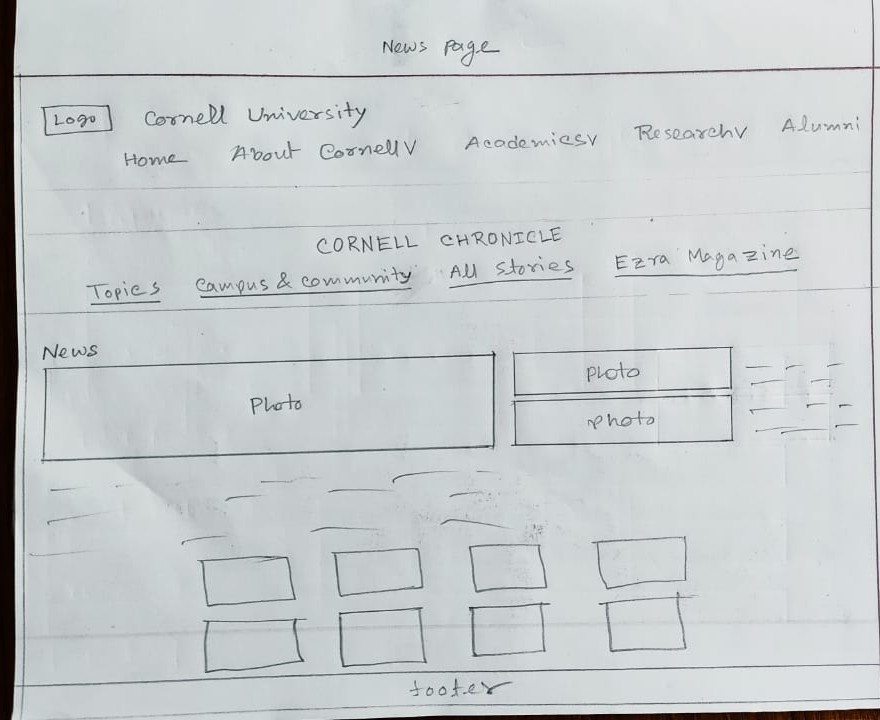 News page
Logo Cornell University
Home About Cornell v Academics v Research v Alumni
CORNELL CHRONICLE
Topics Campus & community All stories Ezra Magazine
News
Photo
photo
photo
footer